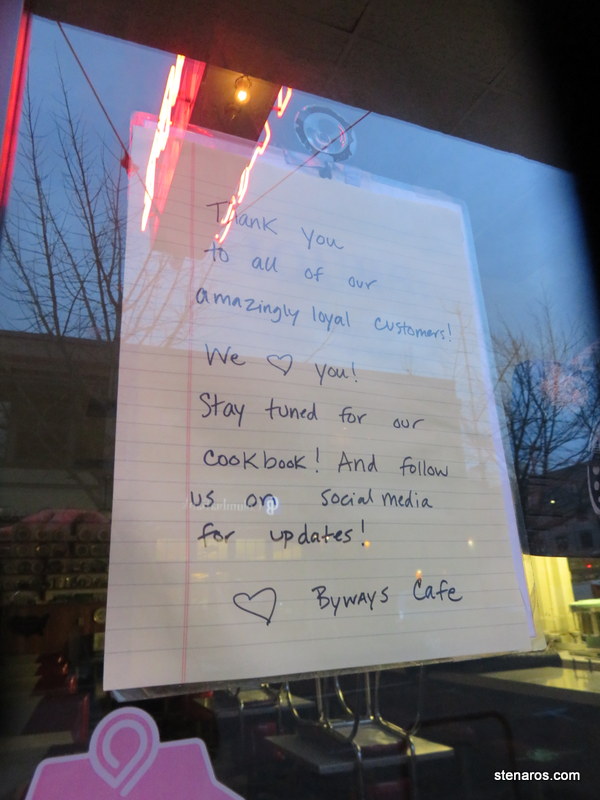 Thank you
to all of our
amazingly loyal customers!
We ♡ you!
Stay tuned for our
cookbook! And follow
us on social media
for updates!
♡ Byways Cafe
stenaros.com